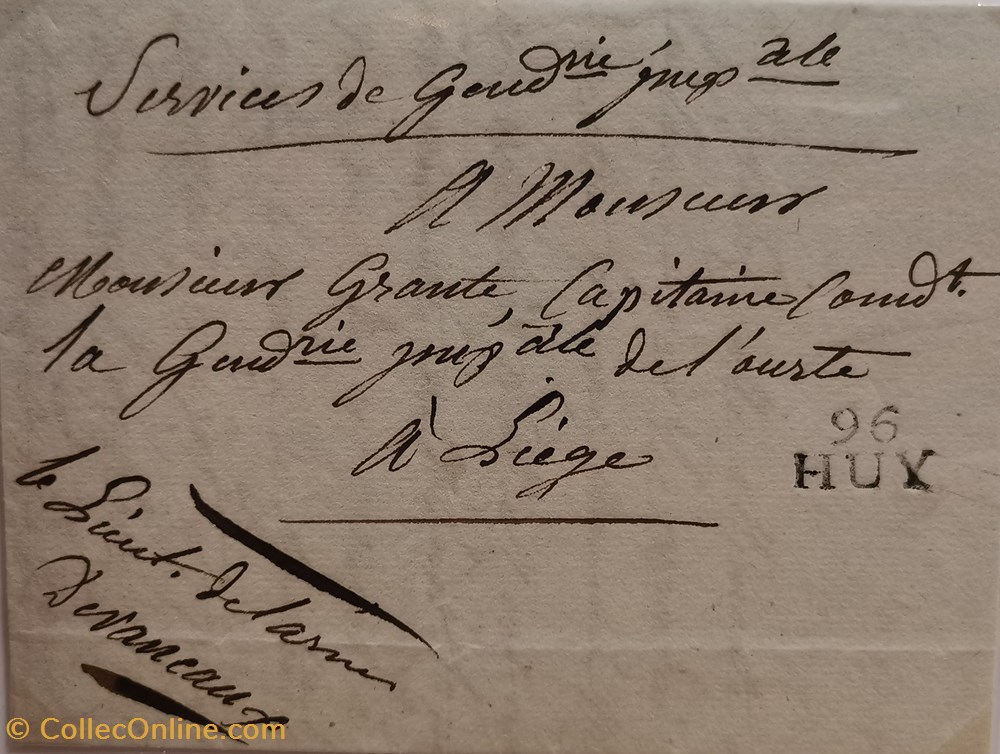 Services de Gendrie impale
A Monsieur
Monsieur Grante, Capitaine Comdt.
la Gendrie impale de l'ourte
à Liège
96
HUY
le Lieut. de l'arme
Devaneaux
© CollecOnline.com